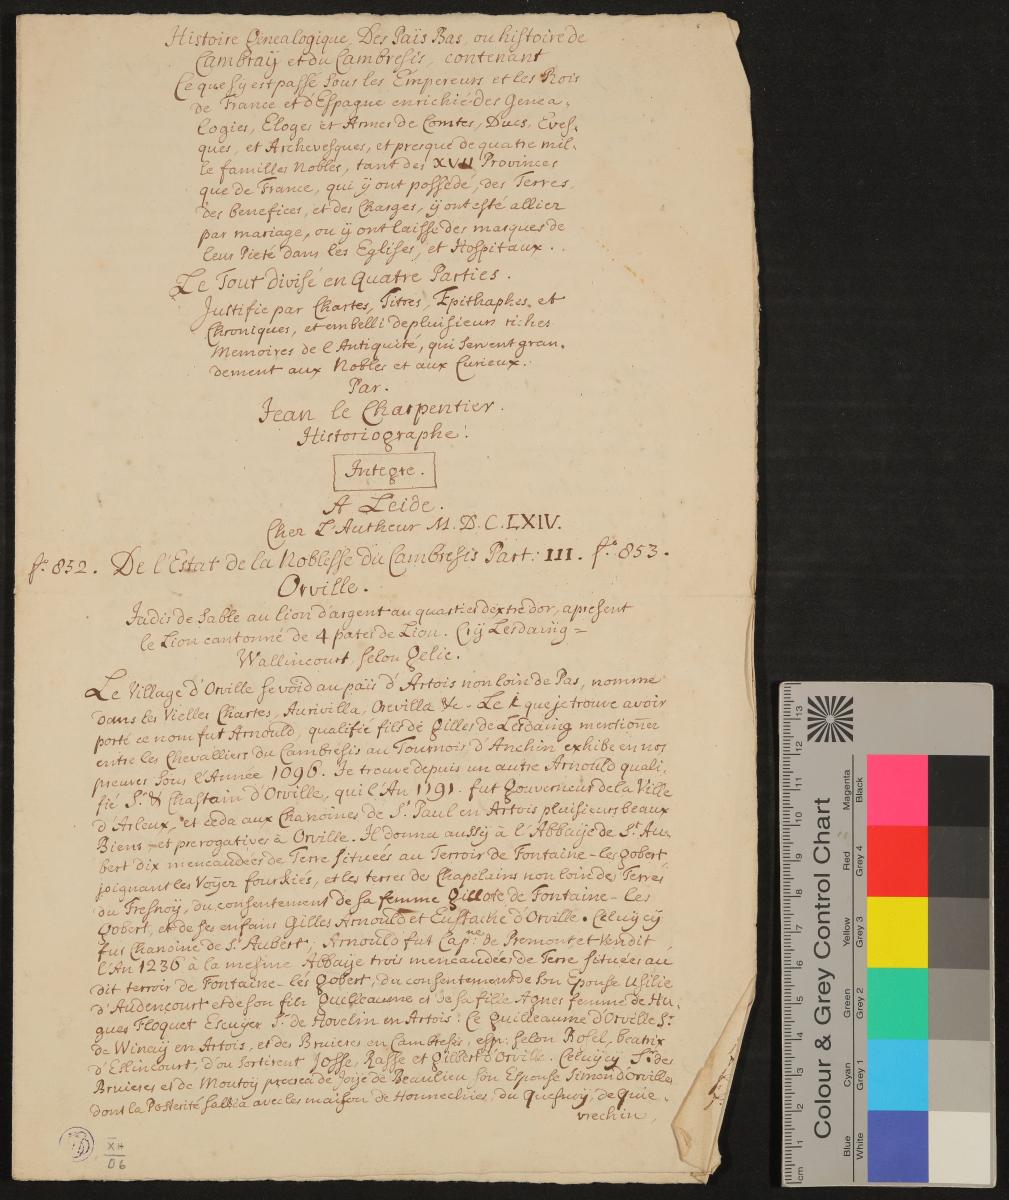 Histoire Genealogique Des Païs Bas, ou histoire de
Cambraÿ et du Cambresis, contenant
Ce que s'ÿ est passé sous les Empereurs et les Rois
de France et d'Espagne enrichie des Genea-
logies, Eloges et Armes de Comtes, Ducs, Eves-
ques, et Archevesques, et presque de quatre mil-
le familles Nobles, tant des XVII Provinces
que de France, qui ÿ ont possedé, des Terres,
des benefices, et des Charges, ÿ ont esté allier
par mariage, ou ÿ ont laissé des marques de
leur Pieté dans les Eglises, et Hospitaux. . .
Le Tout divisé en Quatre Parties.
Justifie par Chartes, Titres, Epithaphes, et
Chroniques, et embelli de pluisieurs riches
Memoires de l'Antiquité, qui servent gran-
dement aux Nobles et aux Curieux.
Par.
Jean le Charpentier.
Historiographe.
Integre.
A Leide.
Chez L'Autheur M. D. C. LXIV.
f.° 852. De l'Estat de la Noblesse du Cambresis Part: III. f.° 853.
Orville.
Jadis de Sable au lion d'argent au quartier dextre dor, apresent
le Lion cantonné de 4 pates de Lion. Crÿ Lesdaing =
Wallincourt, selon Gelic.
Le Village d'Orville se void au païs d'Artois non loin de Pas, nomme
dans les Vielles Chartes, Aurivilla, Orevilla &c. Le 1 que je trouve avoir
porté ce nom fut Arnould, qualifié fils de Gilles de Lesdaing mentioner
entre les Chevalliers du Cambresis au Tournois d'Anchin exhibe en nos
preuves sous l'Année 1096. Je trouve depuis un autre Arnould quali-
fié S.r & Chastain d'Orville, qui l'An 1191. fut Gouverneur de la Ville
d'Arleux, et ceda aux Chanoines de S.t Paul en Artois pluisieurs beaux
Biens et prerogatives à Orville. Il donna aussÿ à l'Abbaÿe de S.t Au-
bert dix mencaudées de Terre situées au Terroir de Fontaine-les gobert
joignant les Voÿez fourkiés, et les terres des Chapelains non loin des Terres
du Fresnoÿ, du consentement de sa femme Gillote de Fontaine-Les
Gobert, et de ses enfans Gilles Arnould et Eustache d'Orville. Celuÿcÿ
fut Chanoine de S.t Aubert; Arnould fut Cap.ne de Premont et Vendit
l'An 1236 à la mesme Abbaÿe trois mencaudées de Terre situées au
dit terroir de Fontaine-lés gobert, du consentement de son Epouse Usilie
d'Audencourt et de son fier Guilleaume et de sa fille Agnes femme de Hu-
gues Floquet Escuÿer S.r de Hovelin en Artois. Ce Guilleaume d'Orville S.r
de Winaÿ en Artois, et des Bruieres en Cambresis, esp. selon Rosel, beatrix
d'Eslincourt, d'ou sortirent Josse, Rasse et Gilbert d'Orville. Celuÿcÿ S.r des
Bruieres et de Montoÿ procrea de Joÿe de Beaulieu son Espouse Simon d'Orville
dont la Posterité s'allia avec les maison de Honnechies, du Quesnoÿ, de Quie-
vrechin,
XII
06
Colour & Grey Control Chart
Blue Cyan Green Yellow Red Magenta
White Grey 1 Grey 2 Grey 3 Grey 4 Black
cm 1 2 3 4 5 6 7 8 9 10 11 12 13